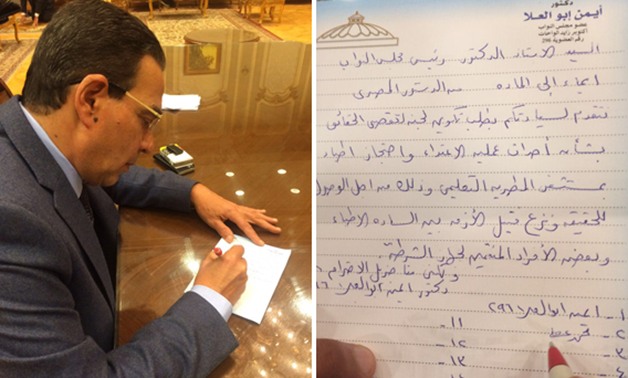 دكتور
أيمن أبو العلا
عضو مجلس النواب
أكتوبر زايد الواحات
رقم العضوية 296
السيد الاستاذ الدكتور رئيس مجلس النواب
ايماء إلى المادة من الدستور المصرى
نتقدم لسيادتكم بطلب تكوين لجنة لتقصى الحقائق
بشأن أحداث عملية الاعتداء واحتجاز اطباء
بمستشفى المطرية التعليمى وذلك من اجل الوصول
للحقيقة ونزع فتيل الأزمة بين السادة الاطباء
وبعض الأفراد المنتمين لجهاز الشرطة.
ولكم منا جزيل الاحترام
دكتور ايمن ابوالعلا
١- ايمن ابوالعلا ٢٩٦
٢- ١١-
٣- ١٢-
٤- ١٣-